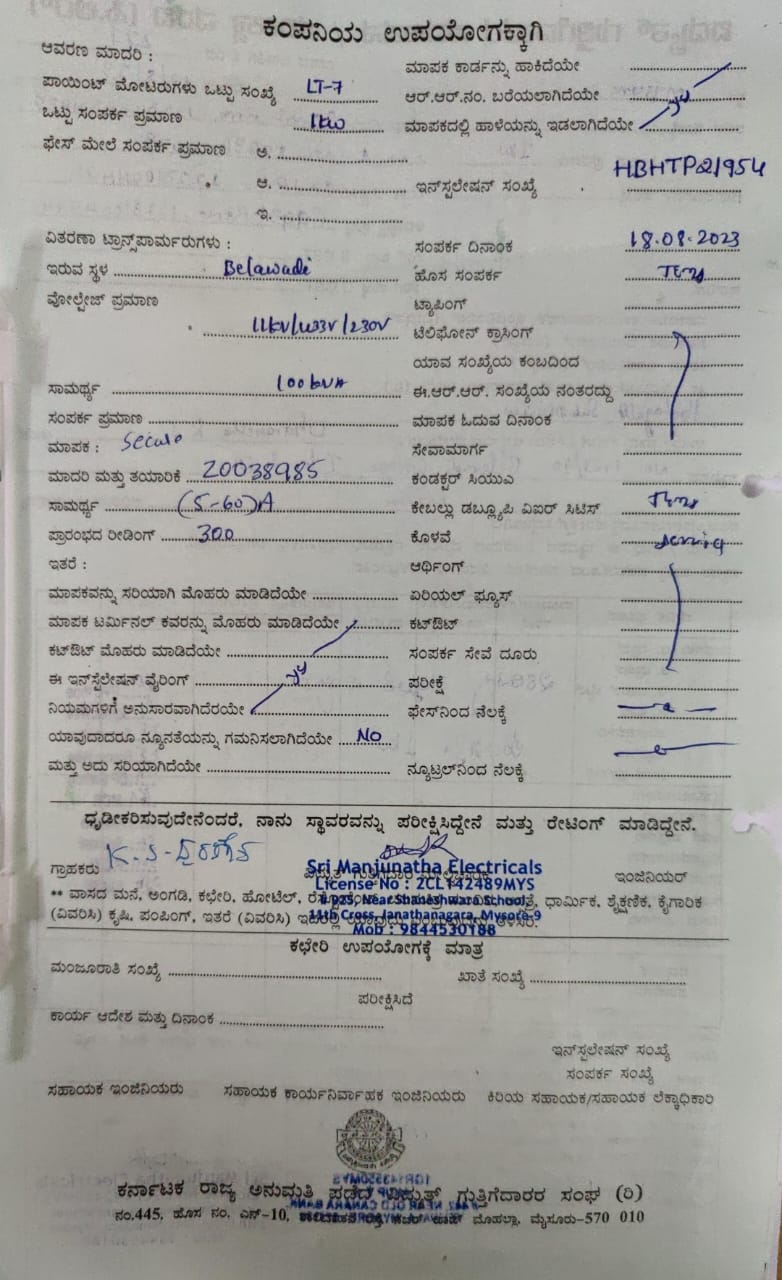 ಕಂಪನಿಯ ಉಪಯೋಗಕ್ಕಾಗಿ
ಆವರಣ ಮಾದರಿ :
ಮಾಪಕ ಕಾರ್ಡನ್ನು ಹಾಕಿದೆಯೇ
ಪಾಯಿಂಟ್ ಮೋಟರುಗಳು ಒಟ್ಟು ಸಂಖ್ಯೆ LT-7
ಆರ್.ಆರ್.ನಂ. ಬರೆಯಲಾಗಿದೆಯೇ
ಒಟ್ಟು ಸಂಪರ್ಕ ಪ್ರಮಾಣ 1kw
ಮಾಪಕದಲ್ಲಿ ಹಾಳೆಯನ್ನು ಇಡಲಾಗಿದೆಯೇ
ಫೇಸ್ ಮೇಲೆ ಸಂಪರ್ಕ ಪ್ರಮಾಣ ಅ.
ಆ.
ಇನ್‌ಸ್ಪಲೇಷನ್ ಸಂಖ್ಯೆ HBHTP21954
ಇ.
ವಿತರಣಾ ಟ್ರಾನ್ಸ್‌ಪಾರ್ಮರುಗಳು :
ಸಂಪರ್ಕ ದಿನಾಂಕ 18.08.2023
ಇರುವ ಸ್ಥಳ Belawadi
ಹೊಸ ಸಂಪರ್ಕ
ವೋಲ್ಟೇಜ್ ಪ್ರಮಾಣ
ಟ್ಯಾಪಿಂಗ್
11kV/433V/230V
ಟೆಲಿಫೋನ್ ಕ್ರಾಸಿಂಗ್
ಯಾವ ಸಂಖ್ಯೆಯ ಕಂಬದಿಂದ
ಸಾಮರ್ಥ್ಯ 100kVA
ಈ.ಆರ್.ಆರ್. ಸಂಖ್ಯೆಯ ನಂತರದ್ದು
ಸಂಪರ್ಕ ಪ್ರಮಾಣ
ಮಾಪಕ ಓದುವ ದಿನಾಂಕ
ಮಾಪಕ :
ಸೇವಾಮಾರ್ಗ
ಮಾದರಿ ಮತ್ತು ತಯಾರಿಕೆ 20038985
ಕಂಡಕ್ಟರ್ ಸಿಯುಎ
ಸಾಮರ್ಥ್ಯ (5-60)A
ಕೇಬಲ್ಲು ಡಬ್ಲ್ಯೂಪಿ ವಿಐಆರ್ ಸಿಟಿಸ್
ಪ್ರಾರಂಭದ ರೀಡಿಂಗ್ 300
ಕೊಳವೆ
ಇತರೆ :
ಆರ್ಥಿಂಗ್
ಮಾಪಕವನ್ನು ಸರಿಯಾಗಿ ಮೊಹರು ಮಾಡಿದೆಯೇ
ಏರಿಯಲ್ ಫ್ಯೂಸ್
ಮಾಪಕ ಟರ್ಮಿನಲ್ ಕವರನ್ನು ಮೊಹರು ಮಾಡಿದೆಯೇ
ಕಟ್‌ಔಟ್
ಕಟ್‌ಔಟ್ ಮೊಹರು ಮಾಡಿದೆಯೇ
ಸಂಪರ್ಕ ಸೇವೆ ದೂರು
ಈ ಇನ್‌ಸ್ಟಲೇಷನ್ ವೈರಿಂಗ್
ಪರೀಕ್ಷೆ
ನಿಯಮಗಳಿಗೆ ಅನುಸಾರವಾಗಿದೆರಯೇ
ಫೇಸ್‌ನಿಂದ ನೆಲಕ್ಕೆ
ಯಾವುದಾದರೂ ನ್ಯೂನತೆಯನ್ನು ಗಮನಿಸಲಾಗಿದೆಯೇ NO
ಮತ್ತು ಅದು ಸರಿಯಾಗಿದೆಯೇ
ನ್ಯೂಟ್ರಲ್‌ನಿಂದ ನೆಲಕ್ಕೆ
ಧೃಡೀಕರಿಸುವುದೇನೆಂದರೆ, ನಾನು ಸ್ಥಾವರವನ್ನು ಪರೀಕ್ಷಿಸಿದ್ದೇನೆ ಮತ್ತು ರೇಟಿಂಗ್ ಮಾಡಿದ್ದೇನೆ.
ಗ್ರಾಹಕರು
ಇಂಜಿನಿಯರ್
Sri Manjunatha Electricals
License No : 2CL142489MYS
# 925, Near Shaneshwara School,
11th Cross, Janathanagara, Mysore-9
Mob : 9844530188
** ವಾಸದ ಮನೆ, ಅಂಗಡಿ, ಕಛೇರಿ, ಹೋಟೆಲ್, ಧಾರ್ಮಿಕ, ಶೈಕ್ಷಣಿಕ, ಕೈಗಾರಿಕ
(ವಿವರಿಸಿ) ಕೃಷಿ, ಪಂಪಿಂಗ್, ಇತರೆ (ವಿವರಿಸಿ)
ಕಛೇರಿ ಉಪಯೋಗಕ್ಕೆ ಮಾತ್ರ
ಮಂಜೂರಾತಿ ಸಂಖ್ಯೆ
ಖಾತೆ ಸಂಖ್ಯೆ
ಪರೀಕ್ಷಿಸಿದೆ
ಕಾರ್ಯ ಆದೇಶ ಮತ್ತು ದಿನಾಂಕ
ಇನ್‌ಸ್ಪಲೇಷನ್ ಸಂಖ್ಯೆ
ಸಂಪರ್ಕ ಸಂಖ್ಯೆ
ಸಹಾಯಕ ಇಂಜಿನಿಯರು ಸಹಾಯಕ ಕಾರ್ಯನಿರ್ವಾಹಕ ಇಂಜಿನಿಯರು ಕಿರಿಯ ಸಹಾಯಕ/ಸಹಾಯಕ ಲೆಕ್ಕಾಧಿಕಾರಿ
ಕರ್ನಾಟಕ ರಾಜ್ಯ ಅನುಮತಿ ಪಡೆದ ವಿದ್ಯುತ್ ಗುತ್ತಿಗೆದಾರರ ಸಂಘ (ರಿ)
ನಂ.445, ಹೊಸ ನಂ. ಎನ್-10, ಮೊಹಲ್ಲಾ, ಮೈಸೂರು-570 010